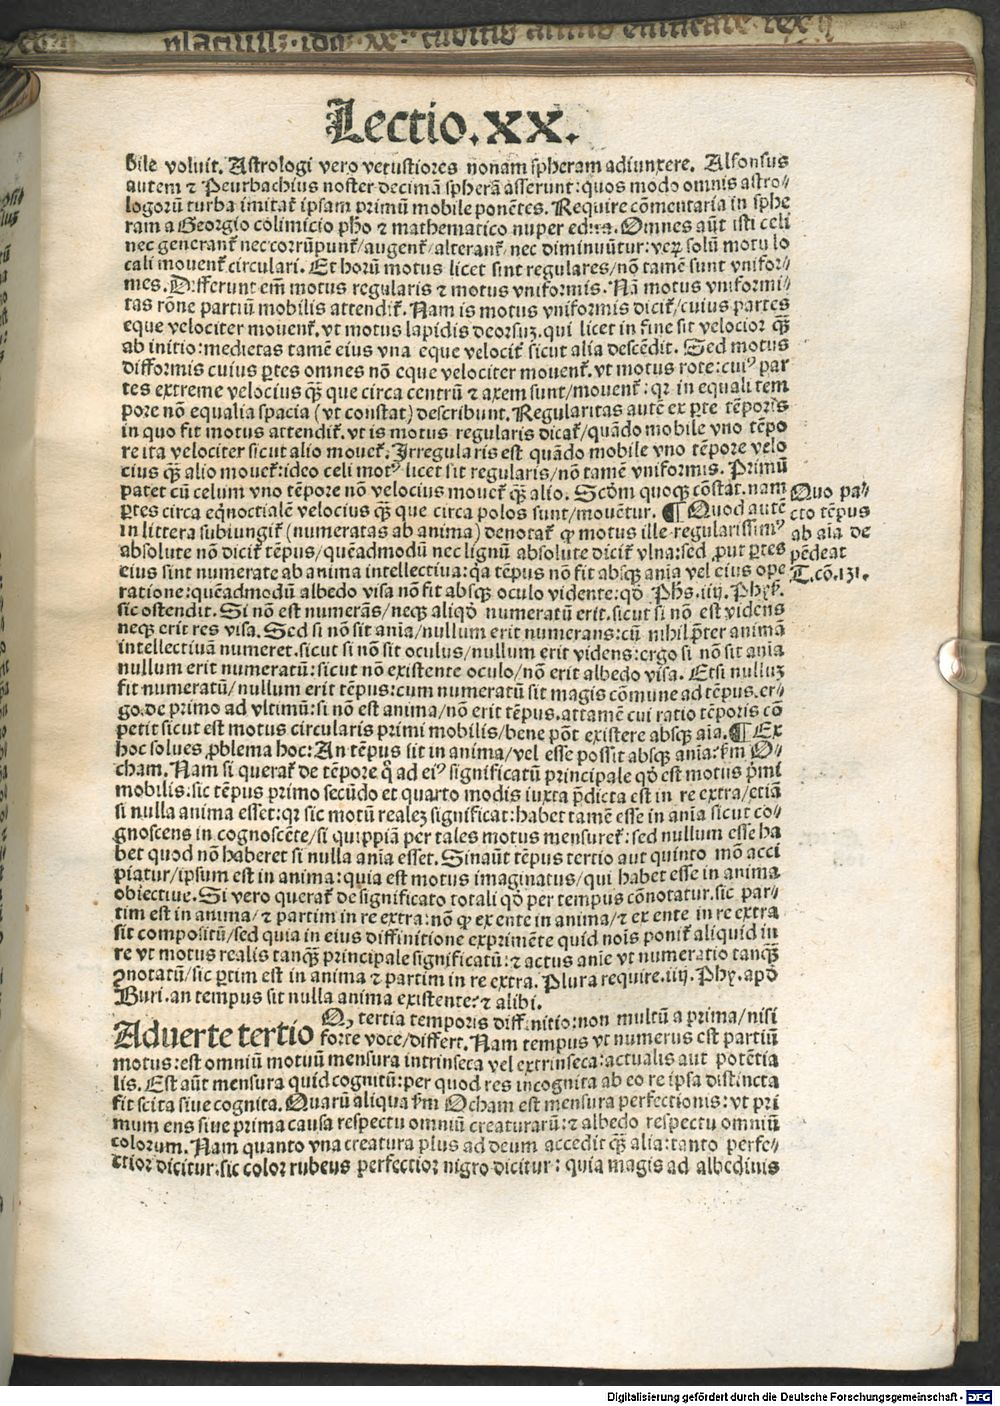 Lectio.XX.
bile voluit. Astrologi vero vetustiores nonam spheram adiunxere. Alfonsus
autem ⁊ Peurbachius noster decimā spherā asserunt: quos modo omnis astro⸗
logorū turba imitat̄ ipsam primū mobile ponētes. Require cōmentaria in sphe
ram a Georgio colimicio pho ⁊ mathematico nuper edita. Omnes aūt isti celi
nec generant̄ nec corrūpunt̄/augent̄/alterant̄/nec diminuūtur: veꝝ solū motu lo
cali mouent̄ circulari. Et horū motus licet sint regulares/nō tamē sunt vnifor⸗
mes. Differunt em̄ motus regularis ⁊ motus vniformis. Nā motus vniformi⸗
tas rōne partiū mobilis attendit̄. Nam is motus vniformis dicit̄/cuius partes
eque velociter mouent̄. vt motus lapidis deorsuꝫ. qui licet in fine sit velocior qꝫ̄
ab initio: medietas tamē eius vna eque velocit̄ sicut alia descēdit. Sed motus
difformis cuius ꝑtes omnes nō eque velociter mouent̄. vt motus rote: cuiꝰ par
tes extreme velocius qꝫ̄ que circa centrū ⁊ axem sunt/mouent̄: qr in equali tem
pore nō equalia spacia (vt constat) describunt. Regularitas autē ex ꝑte tēporis
in quo fit motus attendit̄. vt is motus regularis dicat̄/quādo mobile vno tēpo
re ita velociter sicut alio mouet̄. Irregularis est quādo mobile vno tēpore velo
cius qꝫ̄ alio mouet̄: ideo celi motꝰ licet sit regularis/nō tamē vniformis. Primū
patet cū celum vno tēpore nō velocius mouet̄ qꝫ̄ alio. Scdm̄ quoqꝫ cōstat. nam
ꝑtes circa eqnoctialē velocius qꝫ̄ que circa polos sunt/mouētur. ¶ Quod autē
in littera subiungit̄ (numeratas ab anima) denotat̄ ꝙ motus ille regularissimꝰ
absolute nō dicit̄ tēpus/quēadmodū nec lignū absolute dicit̄ vlna: sed ꝓut ꝑtes
eius sint numerate ab anima intellectiua: qa tēpus nō fit absqꝫ aīa vel eius ope
ratione: quēadmodū albedo visa nō fit absqꝫ oculo vidente: qđ Phs. iiij. Phyẜ.
sic ostendit. Si nō est numerās/neqꝫ aliqđ numeratū erit. sicut si nō est videns
neqꝫ erit res visa. Sed si nō sit aīa/nullum erit numerans: cū nihil p̄ter animā
intellectiuā numeret. sicut si nō sit oculus/nullum erit videns: ergo si nō sit aīa
nullum erit numeratū: sicut nō existente oculo/nō erit albedo visa. Etsi nulluꝫ
fit numeratū/nullum erit tēpus: cum numeratū sit magis cōmune ad tēpus. er⸗
go. de primo ad vltimū: si nō est anima/nō erit tēpus. attamē cui ratio tēporis cō
petit sicut est motus circularis primi mobilis/bene pōt existere absqꝫ aīa. ¶ Ex
hoc solues ꝓblema hoc: An tēpus sit in anima/vel esse possit absqꝫ aīa: ẜm O⸗
cham. Nam si querat̄ de tēpore q̄ ad eiꝰ significatū principale qđ est motus p̄mi
mobilis: sic tēpus primo secūdo et quarto modis iuxta p̄dicta est in re extra/etiā
si nulla anima esset: qr sic motū realeꝫ significat: habet tamē esse in aīa sicut co⸗
gnoscens in cognoscēte/si quippiā per tales motus mensuret̄: sed nullum esse ha
bet quod nō haberet si nulla aīa esset. Sinaūt tēpus tertio aut quinto mō acci
piatur/ipsum est in anima: quia est motus imaginatus/qui habet esse in anima
obiectiue. Si vero querat̄ de significato totali qđ per tempus cōnotatur. sic par⸗
tim est in anima/⁊ partim in re extra: nō ꝙ ex ente in anima/⁊ ex ente in re extra
sit compositū/sed quia in eius diffinitione exprimēte quid nois ponit̄ aliquid in
re vt motus realis tanqꝫ̄ principale significatū: ⁊ actus anie vt numeratio tanqꝫ̄
ꝯnotatū/sic ꝑtim est in anima ⁊ partim in re extra. Plura require. iiij. Phy. apđ
Buri. an tempus sit nulla anima existente? ⁊ alibi.
Aduerte tertio Qꝫ tertia temporis diffinitio: non multū a prima/nisi
forte voce/differt. Nam tempus vt numerus est partiū
motus: est omniū motuū mensura intrinseca vel extrinseca: actualis aut potētia
lis. Est aūt mensura quid cognitū: per quod res incognita ab eo re ipsa distincta
fit scita siue cognita. Quarū aliqua ẜm Ocham est mensura perfectionis: vt pri
mum ens siue prima causa respectu omniū creaturarū: ⁊ albedo respectu omniū
colorum. Nam quanto vna creatura plus ad deum accedit qꝫ̄ alia: tanto perfe⸗
ctior dicitur: sic color rubeus perfectior nigro dicitur: quia magis ad albedinis
Quo pa⸗
cto tēpus
ab aīa de
pēdeat
T. cō. 131.
Digitalisierung gefördert durch die Deutsche Forschungsgemeinschaft - DFG